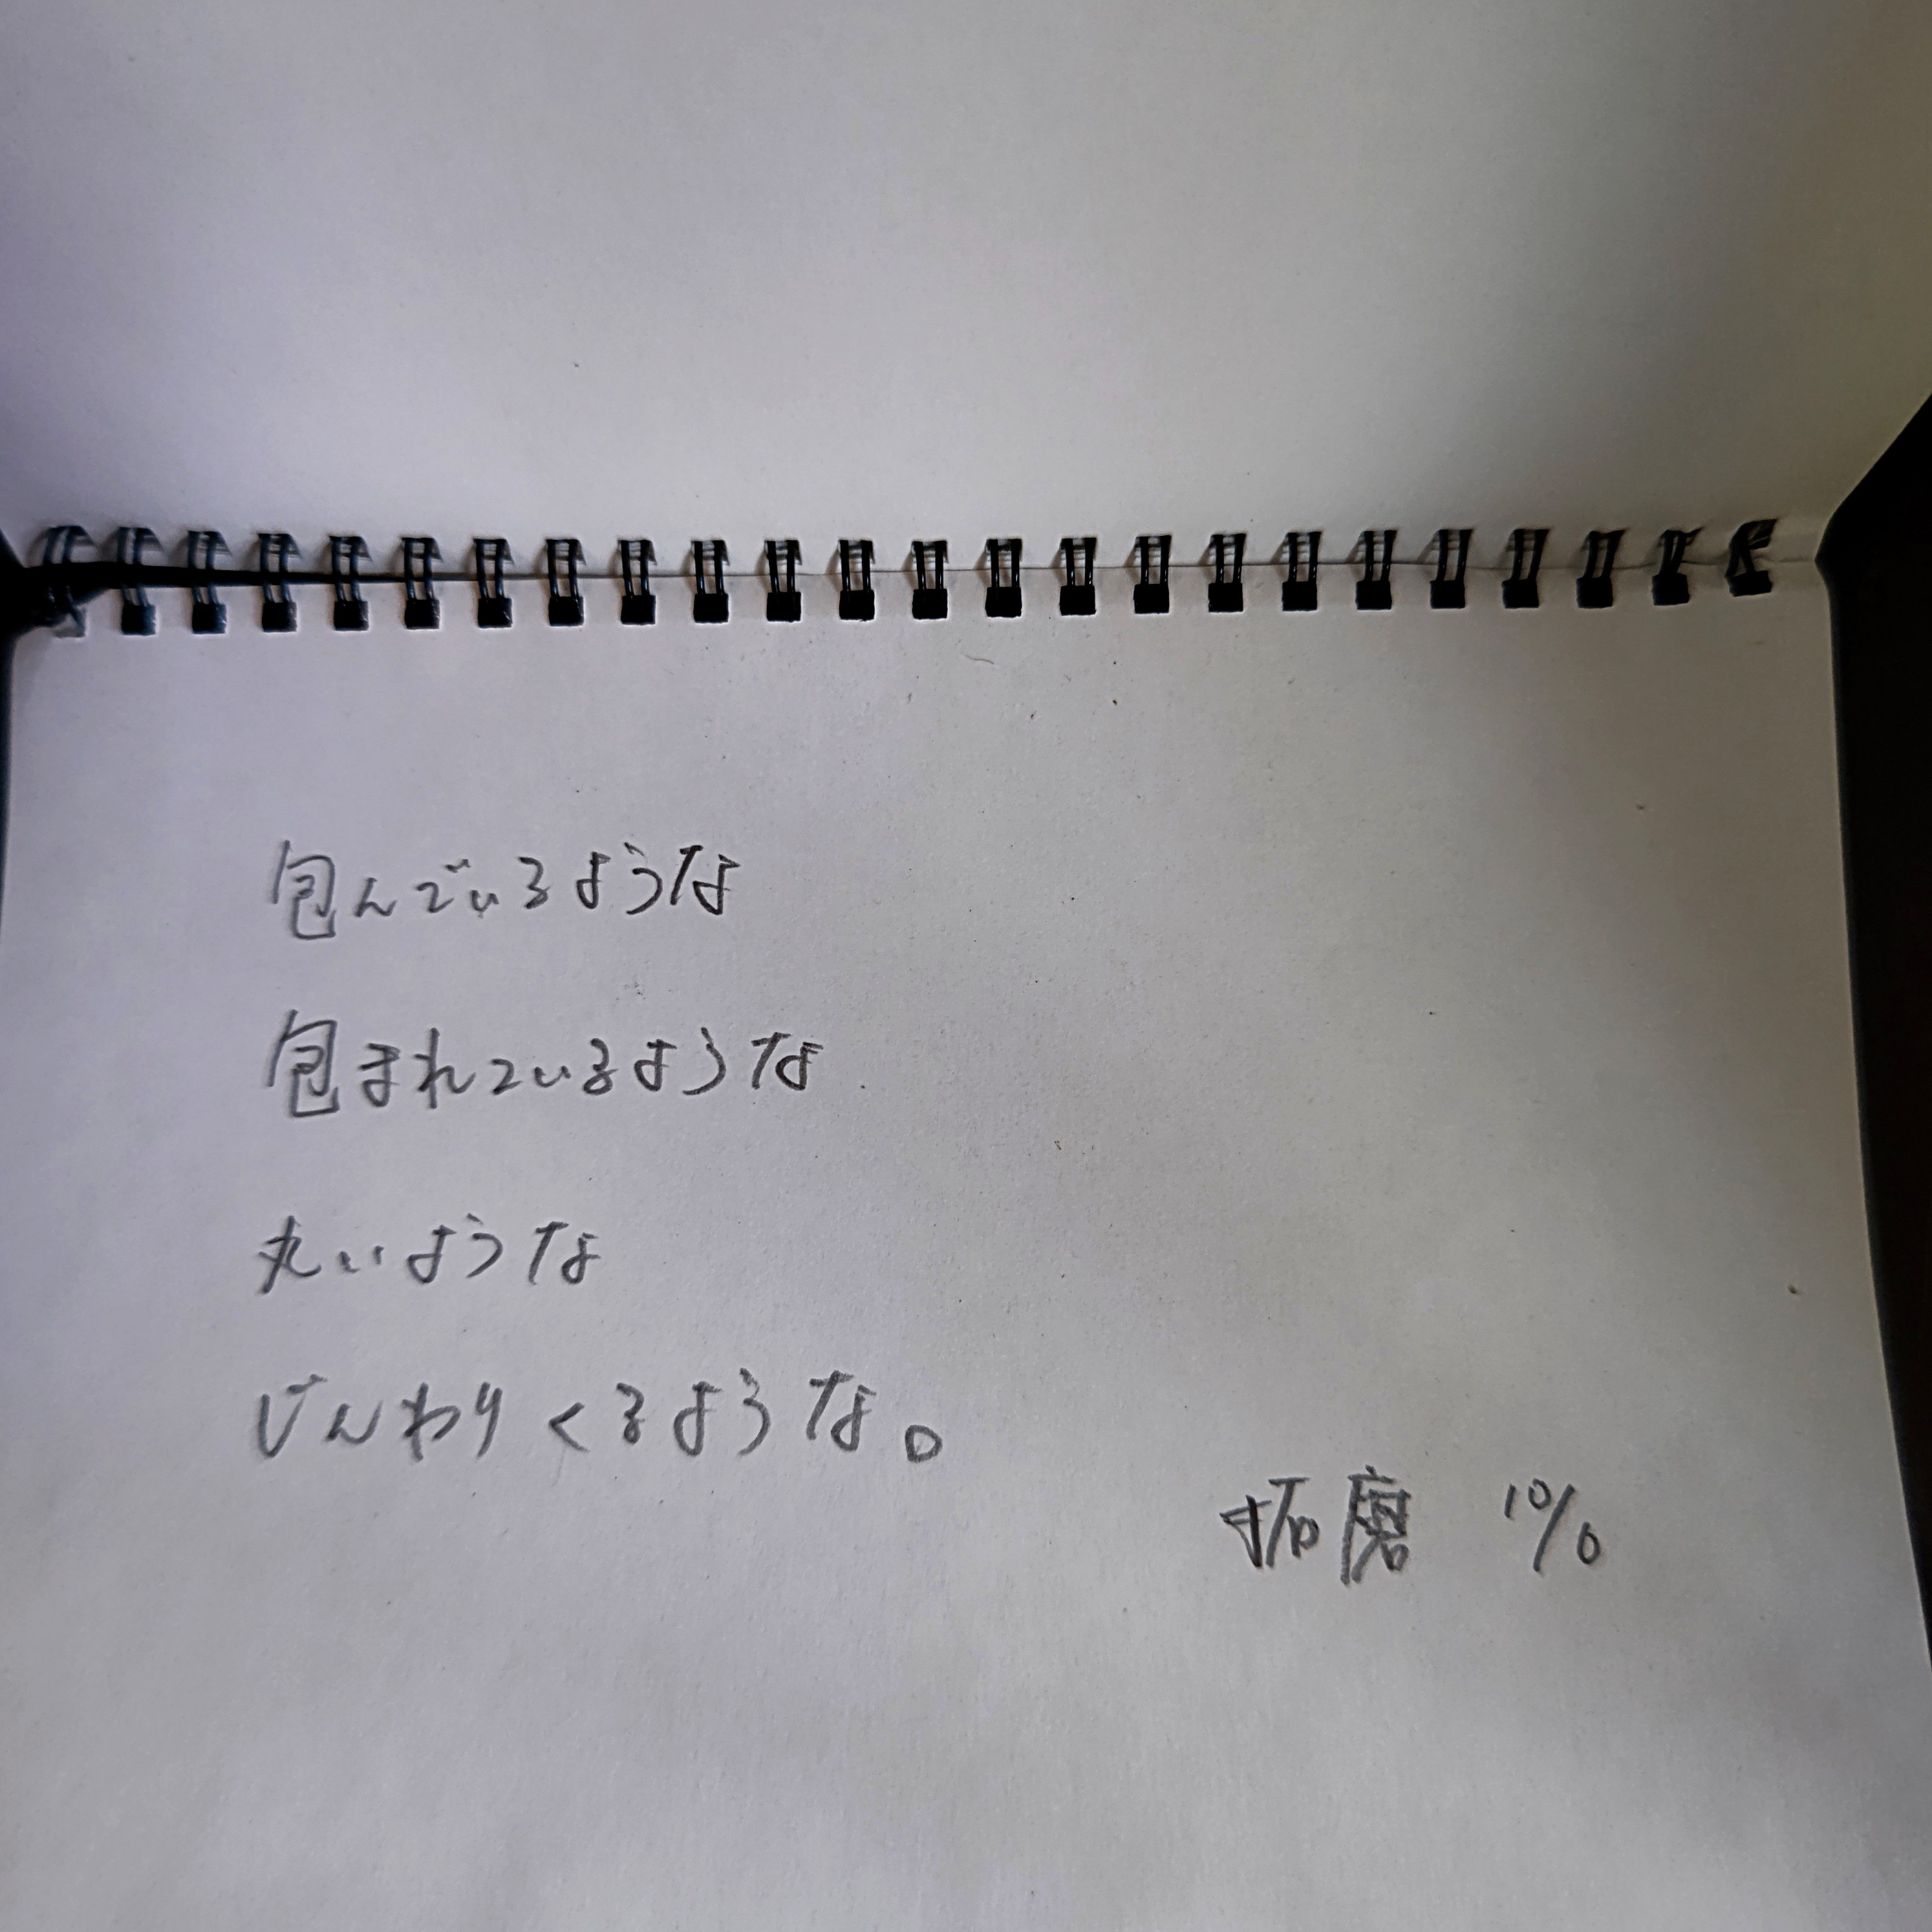 包んでいるような
包まれているような
丸いような
じんわりくるような。
拓磨 10/0